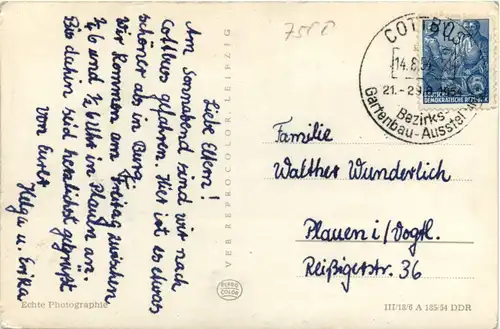 Liebe Eltern!
Am Sonnabend sind wir nach
Cottbus gefahren. Hier ist es etwas
schöner als in Burg.
Wir kommen am Freitag zwischen
1/2 6 und 1/2 6 Uhr in Plauen an.
Bis dahin seid herzlichst gegrüßt
von Eurer
Helga u. Erika
Echte Photographie
VEB REPROCOLOR LEIPZIG
REPRO
COLOR
COTTBUS
14.8.54
21.-29.
Bezirks-
Gartenbau-Ausstell
DEUTSCHE
DEMOKRATISCHE REPUBLIK
Familie
Walther Wunderlich
Plauen i/Vogtl.
Reißigerstr. 36
III/18/6 A 185/54 DDR